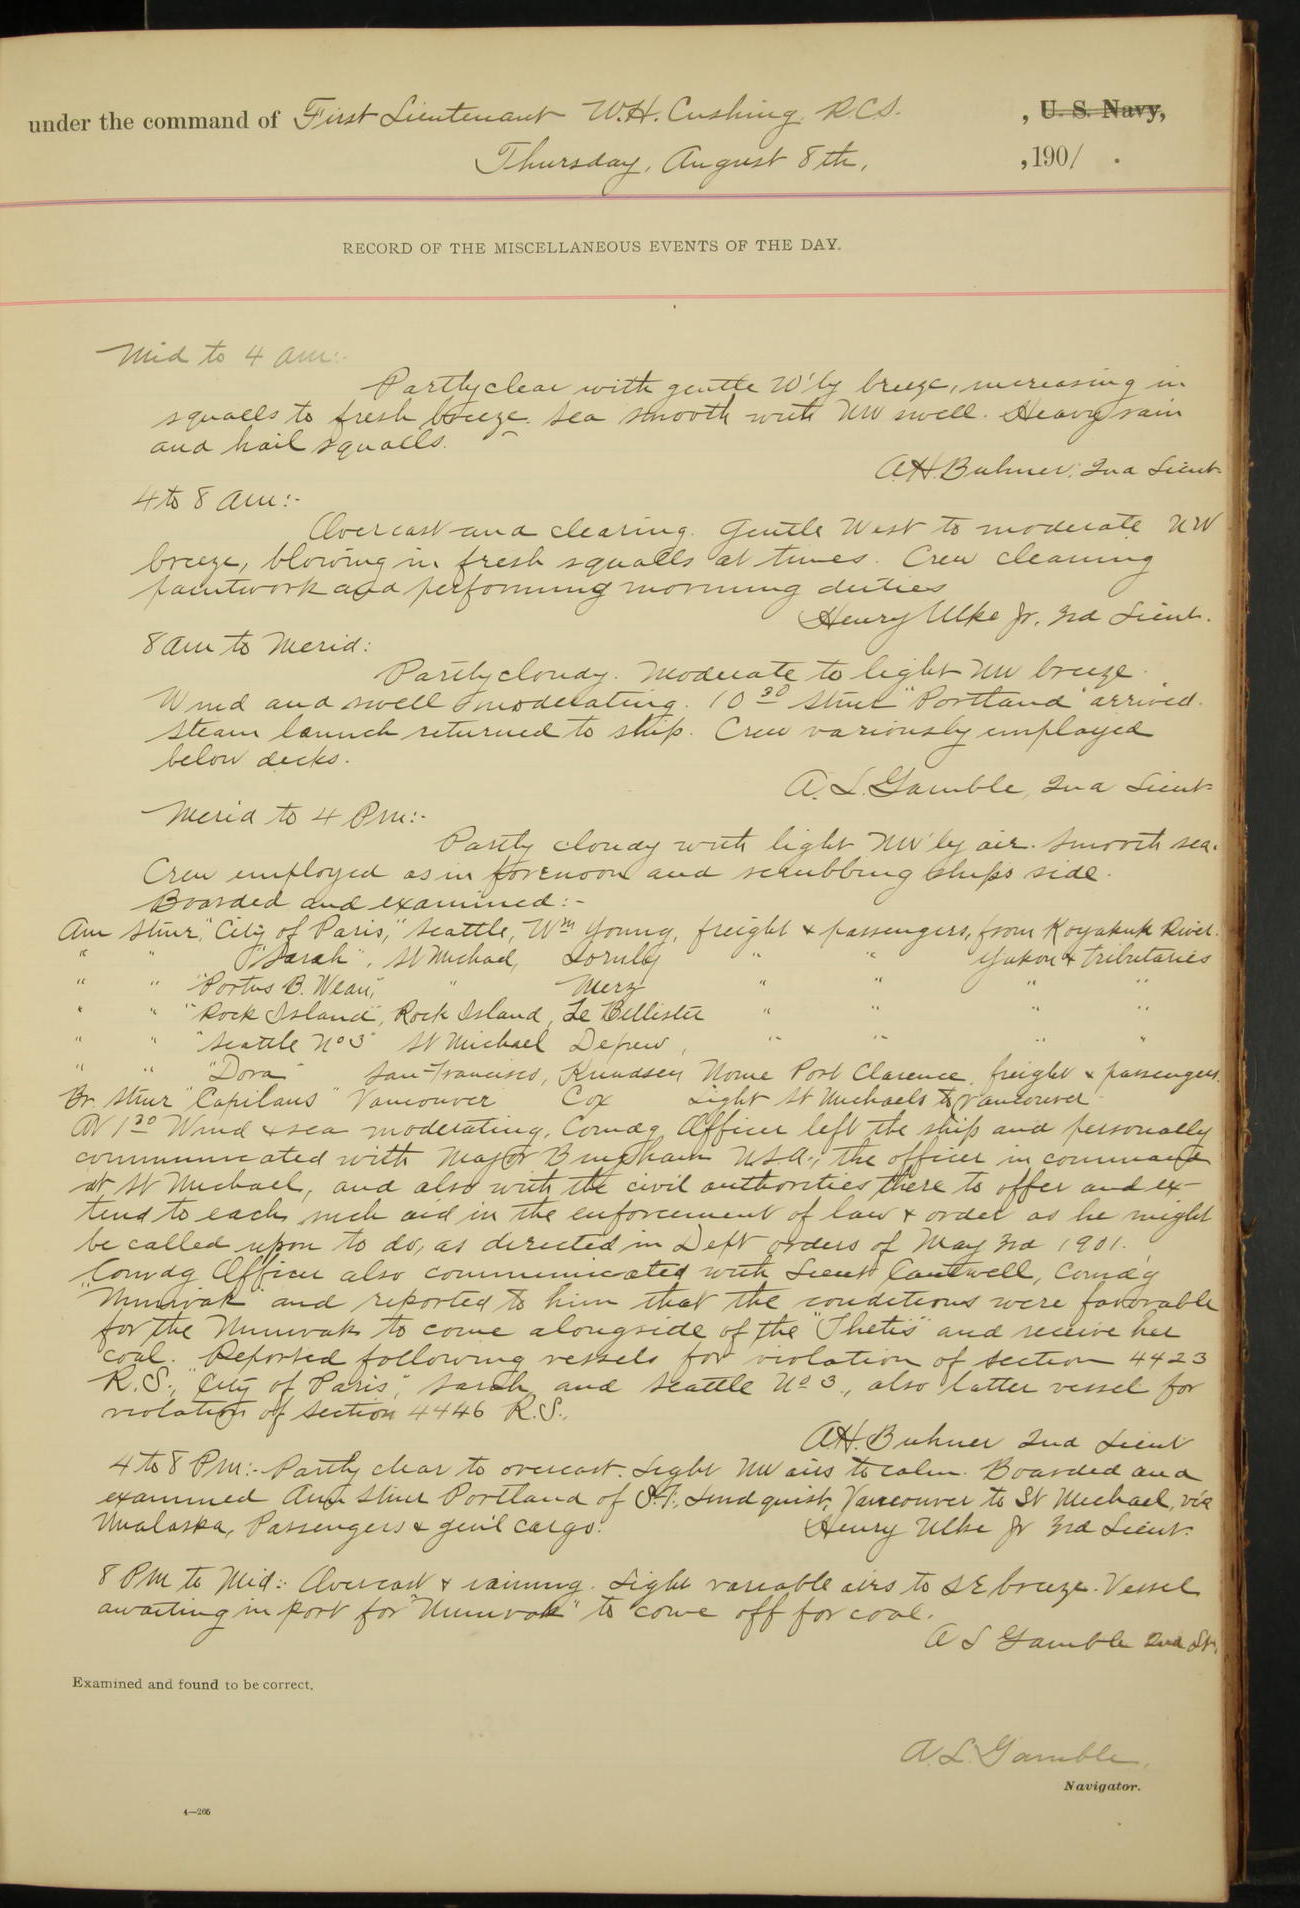 under the command of First Lieutenant W.H. Cushing, R.C.S. , U. S. Navy,
Thursday, August 8th, , 1901 .
RECORD OF THE MISCELLANEOUS EVENTS OF THE DAY.
Mid to 4 am:-
Partly clear with gentle W'ly breeze, increasing in
squalls to fresh breeze. Sea smooth with NW swell. Heavy rain
and hail squalls.
A.H. Buhner, 2nd Lieut
4 to 8 am:-
Overcast and clearing. Gentle West to moderate NW
breeze, blowing in fresh squalls at times. Crew cleaning
paintwork and performing morning duties
Henry Ulke Jr. 3rd Lieut.
8 am to Merid:
Partly cloudy. Moderate to light NW breeze.
Wind and swell moderating. 10 30 Stmr "Portland" arrived.
Steam launch returned to ship. Crew variously employed
below decks.
A. L. Gamble, 2nd Lieut
Merid to 4 Pm:-
Partly cloudy with light NW'ly air. Smooth sea.
Crew employed as in forenoon and scrubbing ships side.
Boarded and examined:-
Am Stmr, "City of Paris," Seattle, Wm Young, freight & passengers, from Koyakuk River.
" " "Sarah", St Michael, " " Yukon & tributaries
" " "Portus B. Weare," " Merz " " " "
" " "Rock Island", Rock Island, Le Bellister " " " "
" " "Seattle No 3" St Michael Depew, " " " "
" " "Dora" San Francisco, Knudsen Nome Port Clarence, freight & passengers.
Br. Stmr "Capilano" Vancouver Cox Light St Michaels to Vancouver.
At 1 30 Wind & sea moderating, Comdg Officer left the ship and personally
communicated with Major Bingham U.S.A., the officer in command
at St Michael, and also with the civil authorities there to offer and ex-
tend to each such aid in the enforcement of law & order as he might
be called upon to do, as directed in Dept orders of May 3rd 1901.
Comdg Officer also communicated with Lieut Cantwell, Comd'g
"Nunivak" and reported to him that the conditions were favorable
for the Nunivak to come alongside of the "Thetis" and receive her
coal. Reported following vessels for violation of Section 4423
R.S., "City of Paris", Sarah, and Seattle No 3., also latter vessel for
violation of Section 4446 R.S.,
A.H. Buhner 2nd Lieut
4 to 8 Pm:- Partly clear to overcast. Light NW airs to calm. Boarded and
examined Am Stmr Portland of S.F., Lindquist, Vancouver to St Michael, via
Unalaska, Passengers & gen'l cargo.
Henry Ulke Jr 3rd Lieut.
8 PM to Mid:- Overcast & raining. Light variable airs to SE breeze. Vessel
awaiting in port for "Nunivak" to come off for coal.
A L Gamble 2nd Lt.
Examined and found to be correct.
A. L. Gamble,
Navigator.
4—205